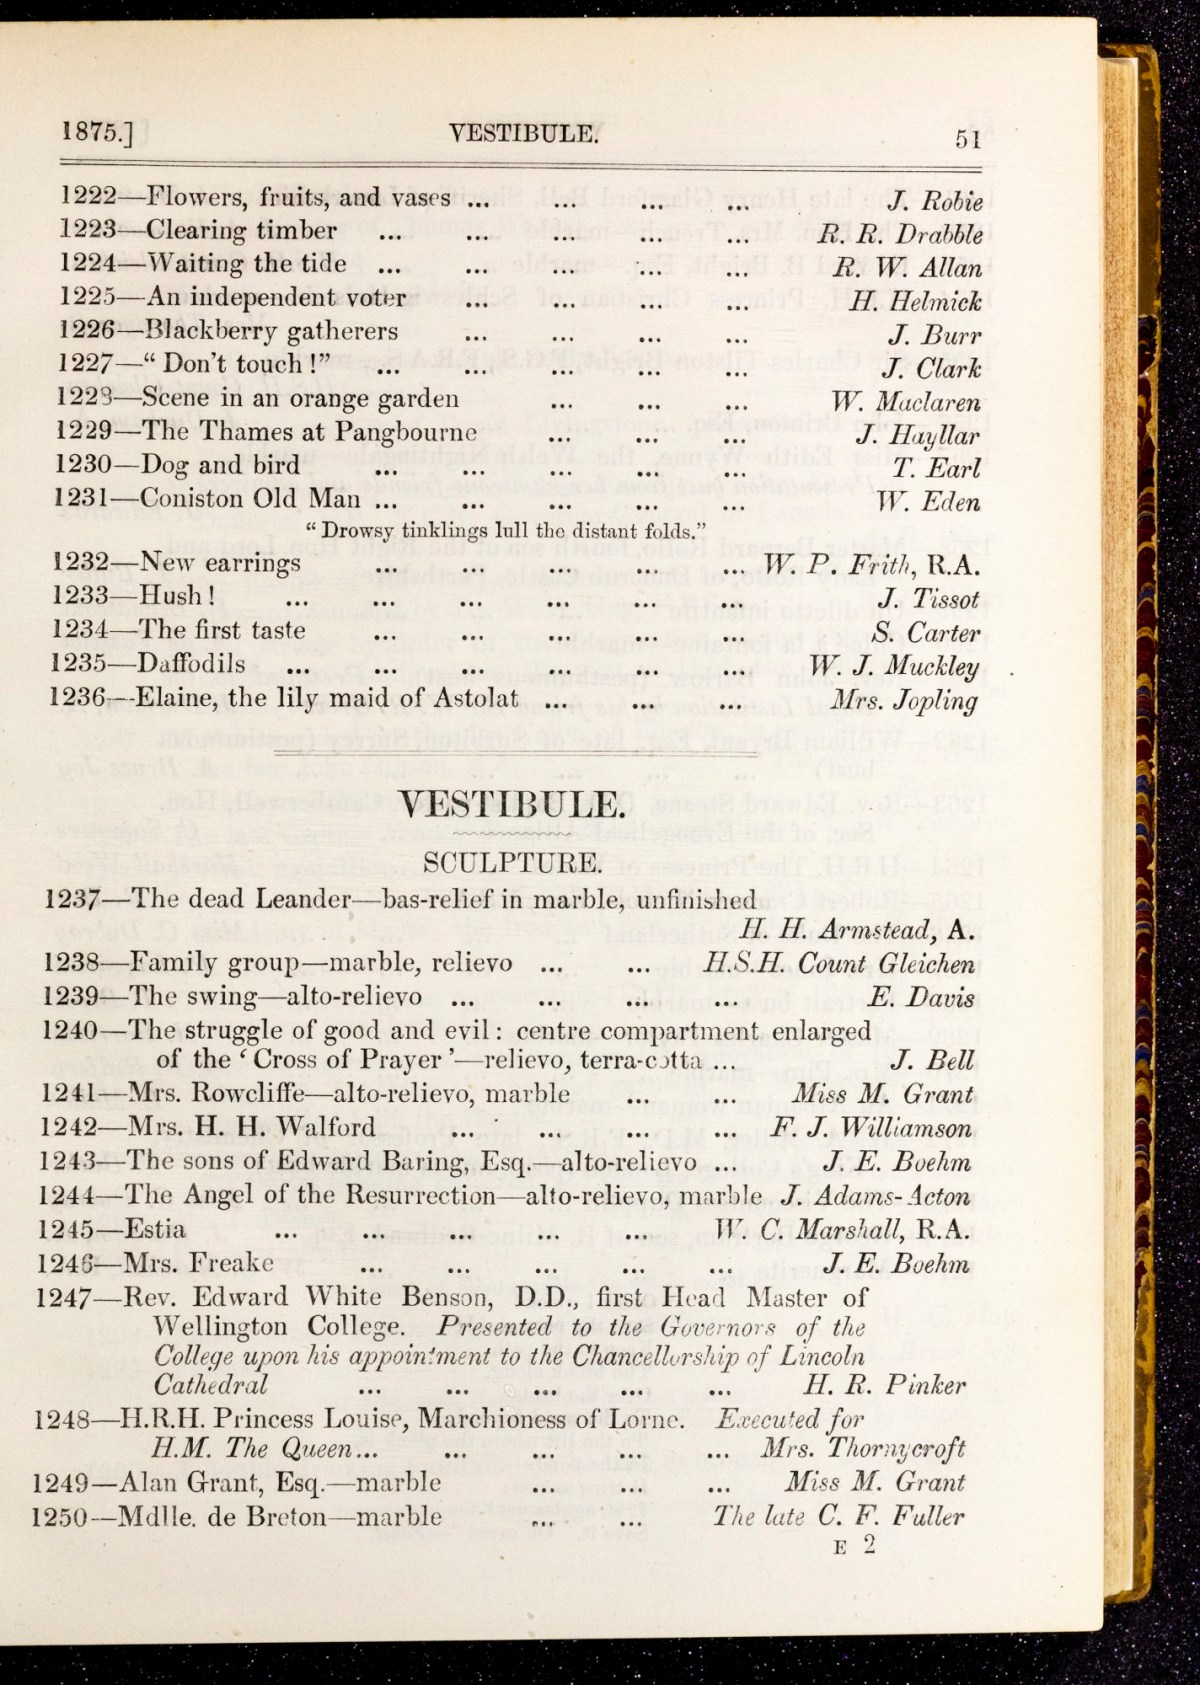 1875.] VESTIBULE. 51
1222—Flowers, fruits, and vases ... ... ... ... J. Robie
1223—Clearing timber ... ... ... ... ... R. R. Drabble
1224—Waiting the tide ... ... ... ... ... R. W. Allan
1225—An independent voter ... ... ... ... H. Helmick
1226—Blackberry gatherers ... ... ... ... J. Burr
1227—“ Don’t touch !” ... ... ... ... ... J. Clark
1228—Scene in an orange garden ... ... ... W. Maclaren
1229—The Thames at Pangbourne ... ... ... J. Hayllar
1230—Dog and bird ... ... ... ... ... T. Earl
1231—Coniston Old Man ... ... ... ... ... W. Eden
“ Drowsy tinklings lull the distant folds.”
1232—New earrings ... ... ... ... ... W. P. Frith, R.A.
1233—Hush ! ... ... ... ... ... ... J. Tissot
1234—The first taste ... ... ... ... ... S. Carter
1235—Daffodils ... ... ... ... ... ... W. J. Muckley
1236—Elaine, the lily maid of Astolat ... ... ... Mrs. Jopling
VESTIBULE.
SCULPTURE.
1237—The dead Leander—bas-relief in marble, unfinished
H. H. Armstead, A.
1238—Family group—marble, relievo ... ... H.S.H. Count Gleichen
1239—The swing—alto-relievo ... ... ... ... E. Davis
1240—The struggle of good and evil : centre compartment enlarged
of the ‘ Cross of Prayer ’—relievo, terra-cotta ... J. Bell
1241—Mrs. Rowcliffe—alto-relievo, marble ... ... Miss M. Grant
1242—Mrs. H. H. Walford ... ... ... ... F. J. Williamson
1243—The sons of Edward Baring, Esq.—alto-relievo ... J. E. Boehm
1244—The Angel of the Resurrection—alto-relievo, marble J. Adams-Acton
1245—Estia ... ... ... ... ... W. C. Marshall, R.A.
1246—Mrs. Freake ... ... ... ... ... J. E. Boehm
1247—Rev. Edward White Benson, D.D., first Head Master of
Wellington College. Presented to the Governors of the
College upon his appointment to the Chancellorship of Lincoln
Cathedral ... ... ... ... ... H. R. Pinker
1248—H.R.H. Princess Louise, Marchioness of Lorne. Executed for
H.M. The Queen... ... ... ... ... Mrs. Thornycroft
1249—Alan Grant, Esq.—marble ... ... ... Miss M. Grant
1250—Mdlle. de Breton—marble ... ... The late C. F. Fuller
E 2